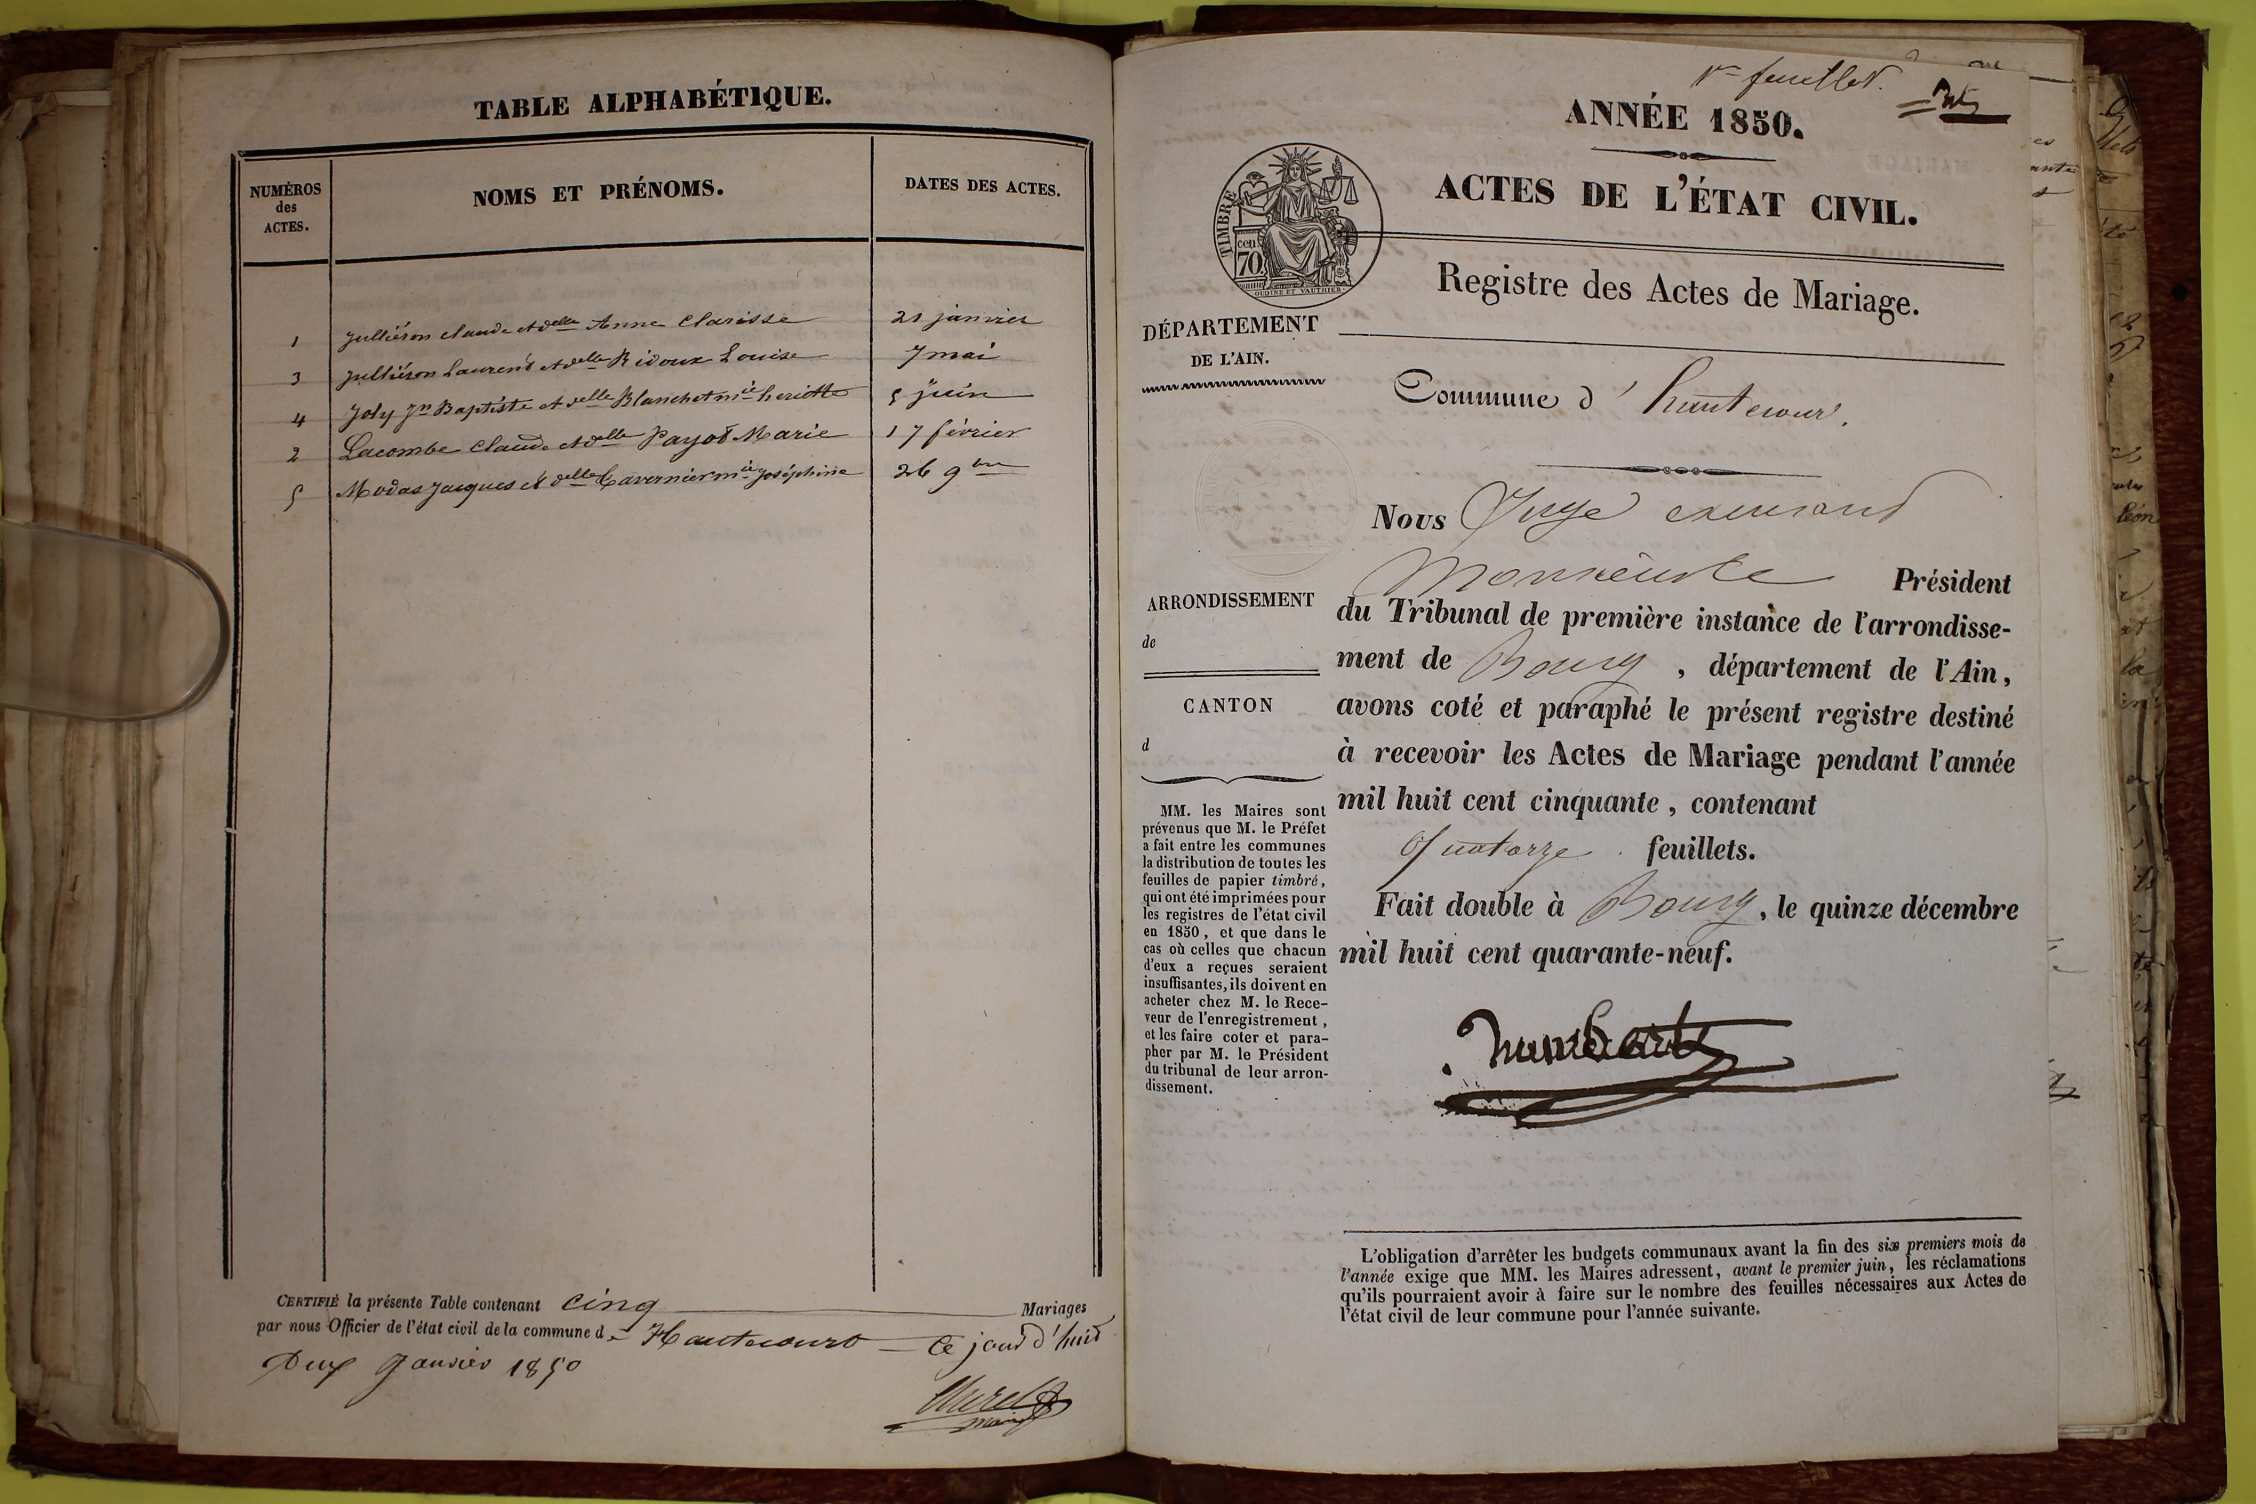 TABLE ALPHABÉTIQUE.
NUMÉROS
des
ACTES.
NOMS ET PRÉNOMS.
DATES DES ACTES.
1 Julliéron claude et delle Anne Clarisse 21 janvier
3 Julliéron Laurent et delle Ridoux Louise 7 mai
4 Joly Jn Baptiste et delle Blanchet mie heriette 5 juin
2 Lacombe Claude et delle Payot Marie 17 février
5 Modas Jacques et delle Tavernier mie Joséphine 26 9bre
CERTIFIÉ la présente Table contenant cinq Mariages
par nous Officier de l'état civil de la commune de Hautecourt Ce jourd'huit
Deux Janvier 1850
Maire
1er feuillet.
ANNÉE 1850.
ACTES DE L'ÉTAT CIVIL.
TIMBRE
cen
70
OUDINÉ ET VAUTHIER
Registre des Actes de Mariage.
DÉPARTEMENT
DE L'AIN.
Commune d' hautecour.
Nous Juge
Président
ARRONDISSEMENT
de
CANTON
d
du Tribunal de première instance de l'arrondisse-
ment de Bourg, département de l'Ain,
avons coté et paraphé le présent registre destiné
à recevoir les Actes de Mariage pendant l'année
mil huit cent cinquante, contenant
Quatorze feuillets.
Fait double à Bourg, le quinze décembre
mil huit cent quarante-neuf.
MM. les Maires sont
prévenus que M. le Préfet
a fait entre les communes
la distribution de toutes les
feuilles de papier timbré,
qui ont été imprimées pour
les registres de l'état civil
en 1850, et que dans le
cas où celles que chacun
d'eux a reçues seraient
insuffisantes, ils doivent en
acheter chez M. le Rece-
veur de l'enregistrement,
et les faire coter et para-
pher par M. le Président
du tribunal de leur arron-
dissement.
L'obligation d'arrêter les budgets communaux avant la fin des six premiers mois de
l'année exige que MM. les Maires adressent, avant le premier juin, les réclamations
qu'ils pourraient avoir à faire sur le nombre des feuilles nécessaires aux Actes de
l'état civil de leur commune pour l'année suivante.